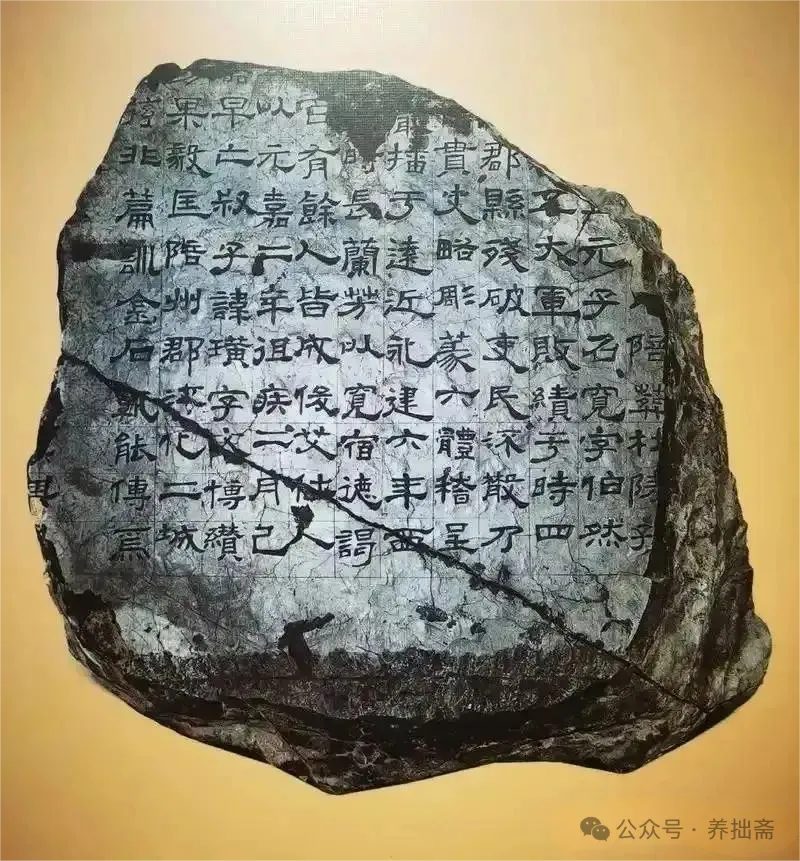 陪葬杜陵子
元子石寬字伯然
大軍敗績于時四
郡縣殘破吏民流散乃
貴史略彫篆六體稽呈
播于遠近永建六年西
長蘭芳以寬宿德謁
有餘人皆成俊艾仕人
以元嘉二年徂疾二月己
早亡叔子諱璜字文博纘
果毅匡陪州郡流化二城
非篇訓金石孰能傳焉
其
公众号·养拙斋